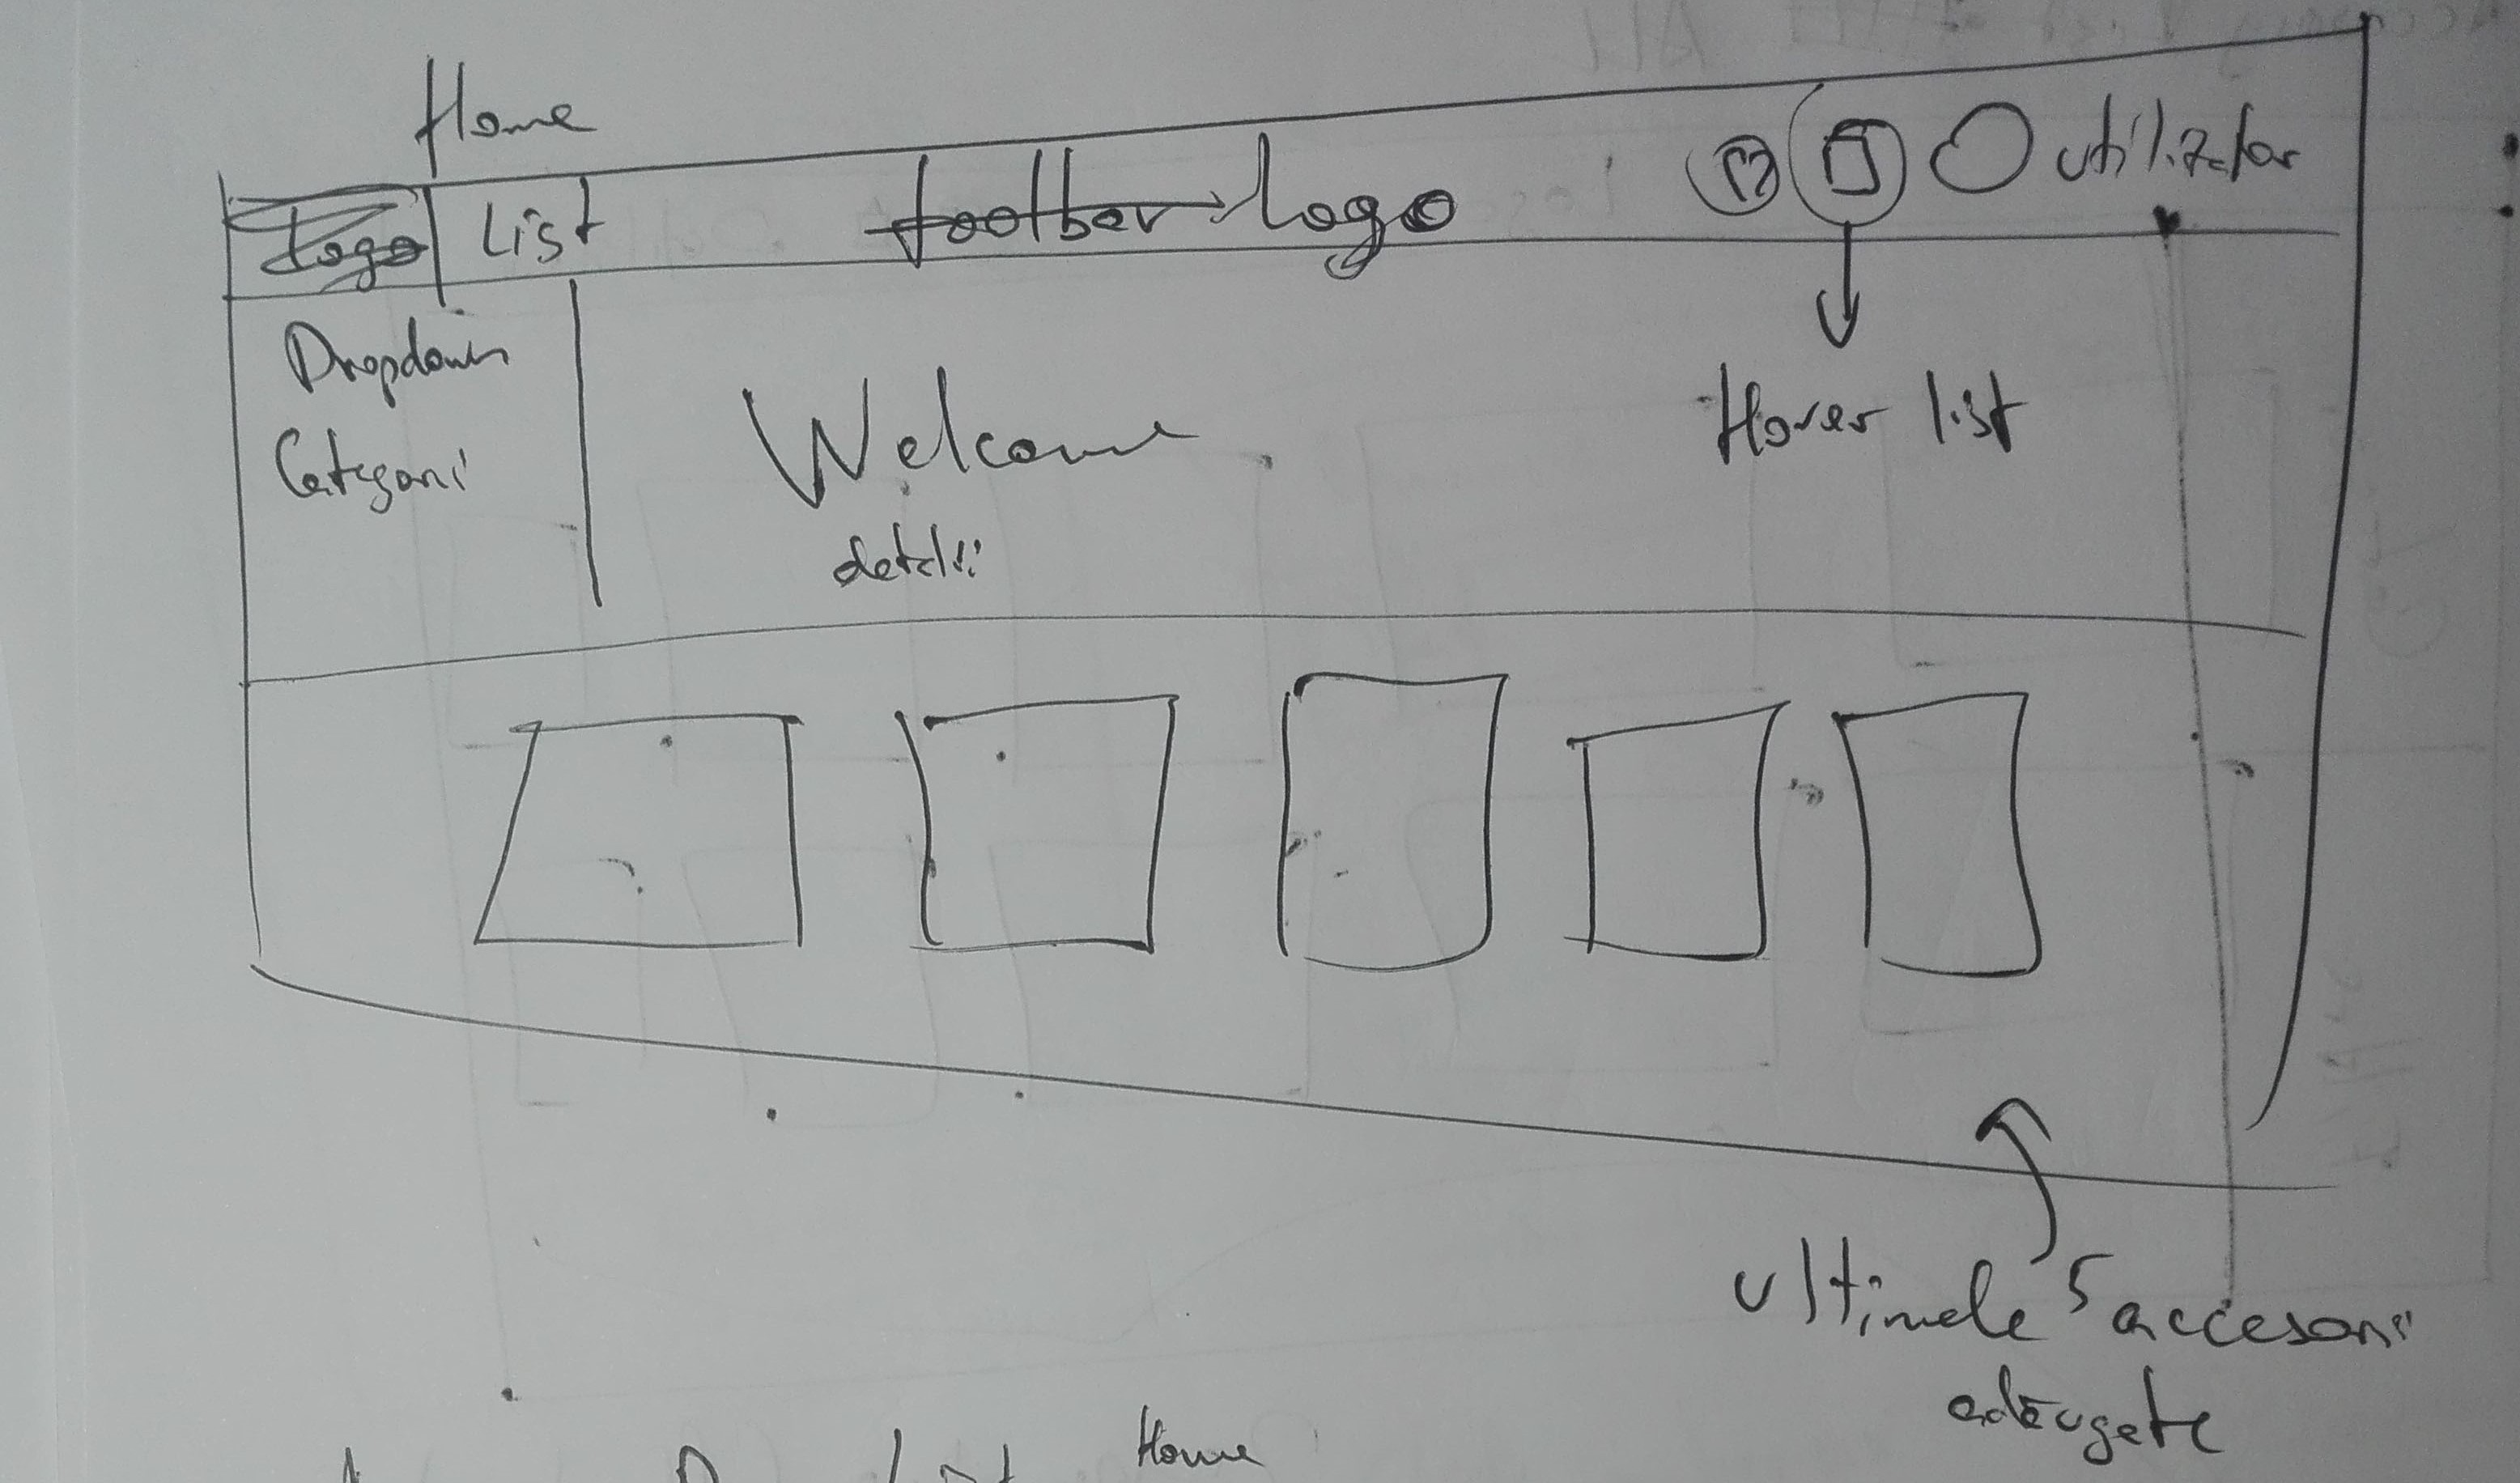 Home
Logo List toolbar Logo utilizator
Dropdown
Categorii
Welcome
detalii
Hover list
ultimele 5 accesorii
adăugate
Home